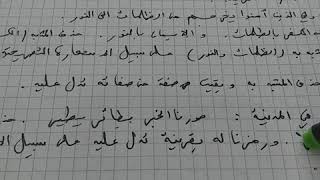 الذين آمنوا يخرجهم من الظلمات الى النور
الكفر بالظلمات . والايمان بالنور . حذف المشبه
به (الظلمات والنور) على سبيل الاستعارة التصريحية
حذف المشبه به وبقيت صفة من صفاته تدل عليه .
في المدينة : صورنا الخبر بطائر يطير . حذف
. ورمزنا له بقرينة تدل عليه على سبيل